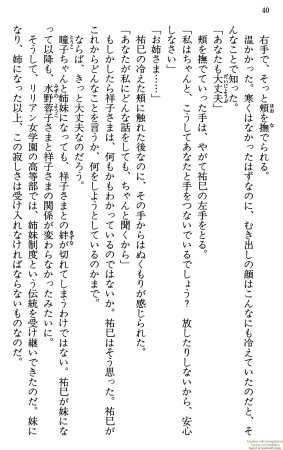 40
右手で、そっと頰を撫でられる。
温かかった。寒くはなかったはずなのに、むき出しの顔はこんなにも冷えていたのだと、そ
んなことで知った。
「あなたも大丈夫」
頰を撫でていった手は、やがて祐巳の左手をとる。
「私はちゃんと、こうしてあなたと手をつないでいるでしょう？　放したりしないから、安心
しなさい」
「お姉さま……」
祐巳の冷えた頰に触れた後なのに、その手からはぬくもりが感じられた。
「あなたが私にどんな話をしても、ちゃんと聞くから」
もしかしたら祥子さまは、何もかもわかっているのではないか。祐巳はそう思った。祐巳が
これからどんなことを言うか、何をしようとしているのかまで。
ならば、きっと大丈夫なのだろう。
瞳子ちゃんと姉妹になっても、祥子さまとの絆が切れてしまうわけではない。祐巳が妹にな
って以降も、水野蓉子さまと祥子さまの関係が変わらなかったみたいに。
そうして、リリアン女学園の高等部では、姉妹制度という伝統を受け継いできたのだ。妹に
なり、姉になった以上、この寂しさは受け入れなければならないものなのだ。